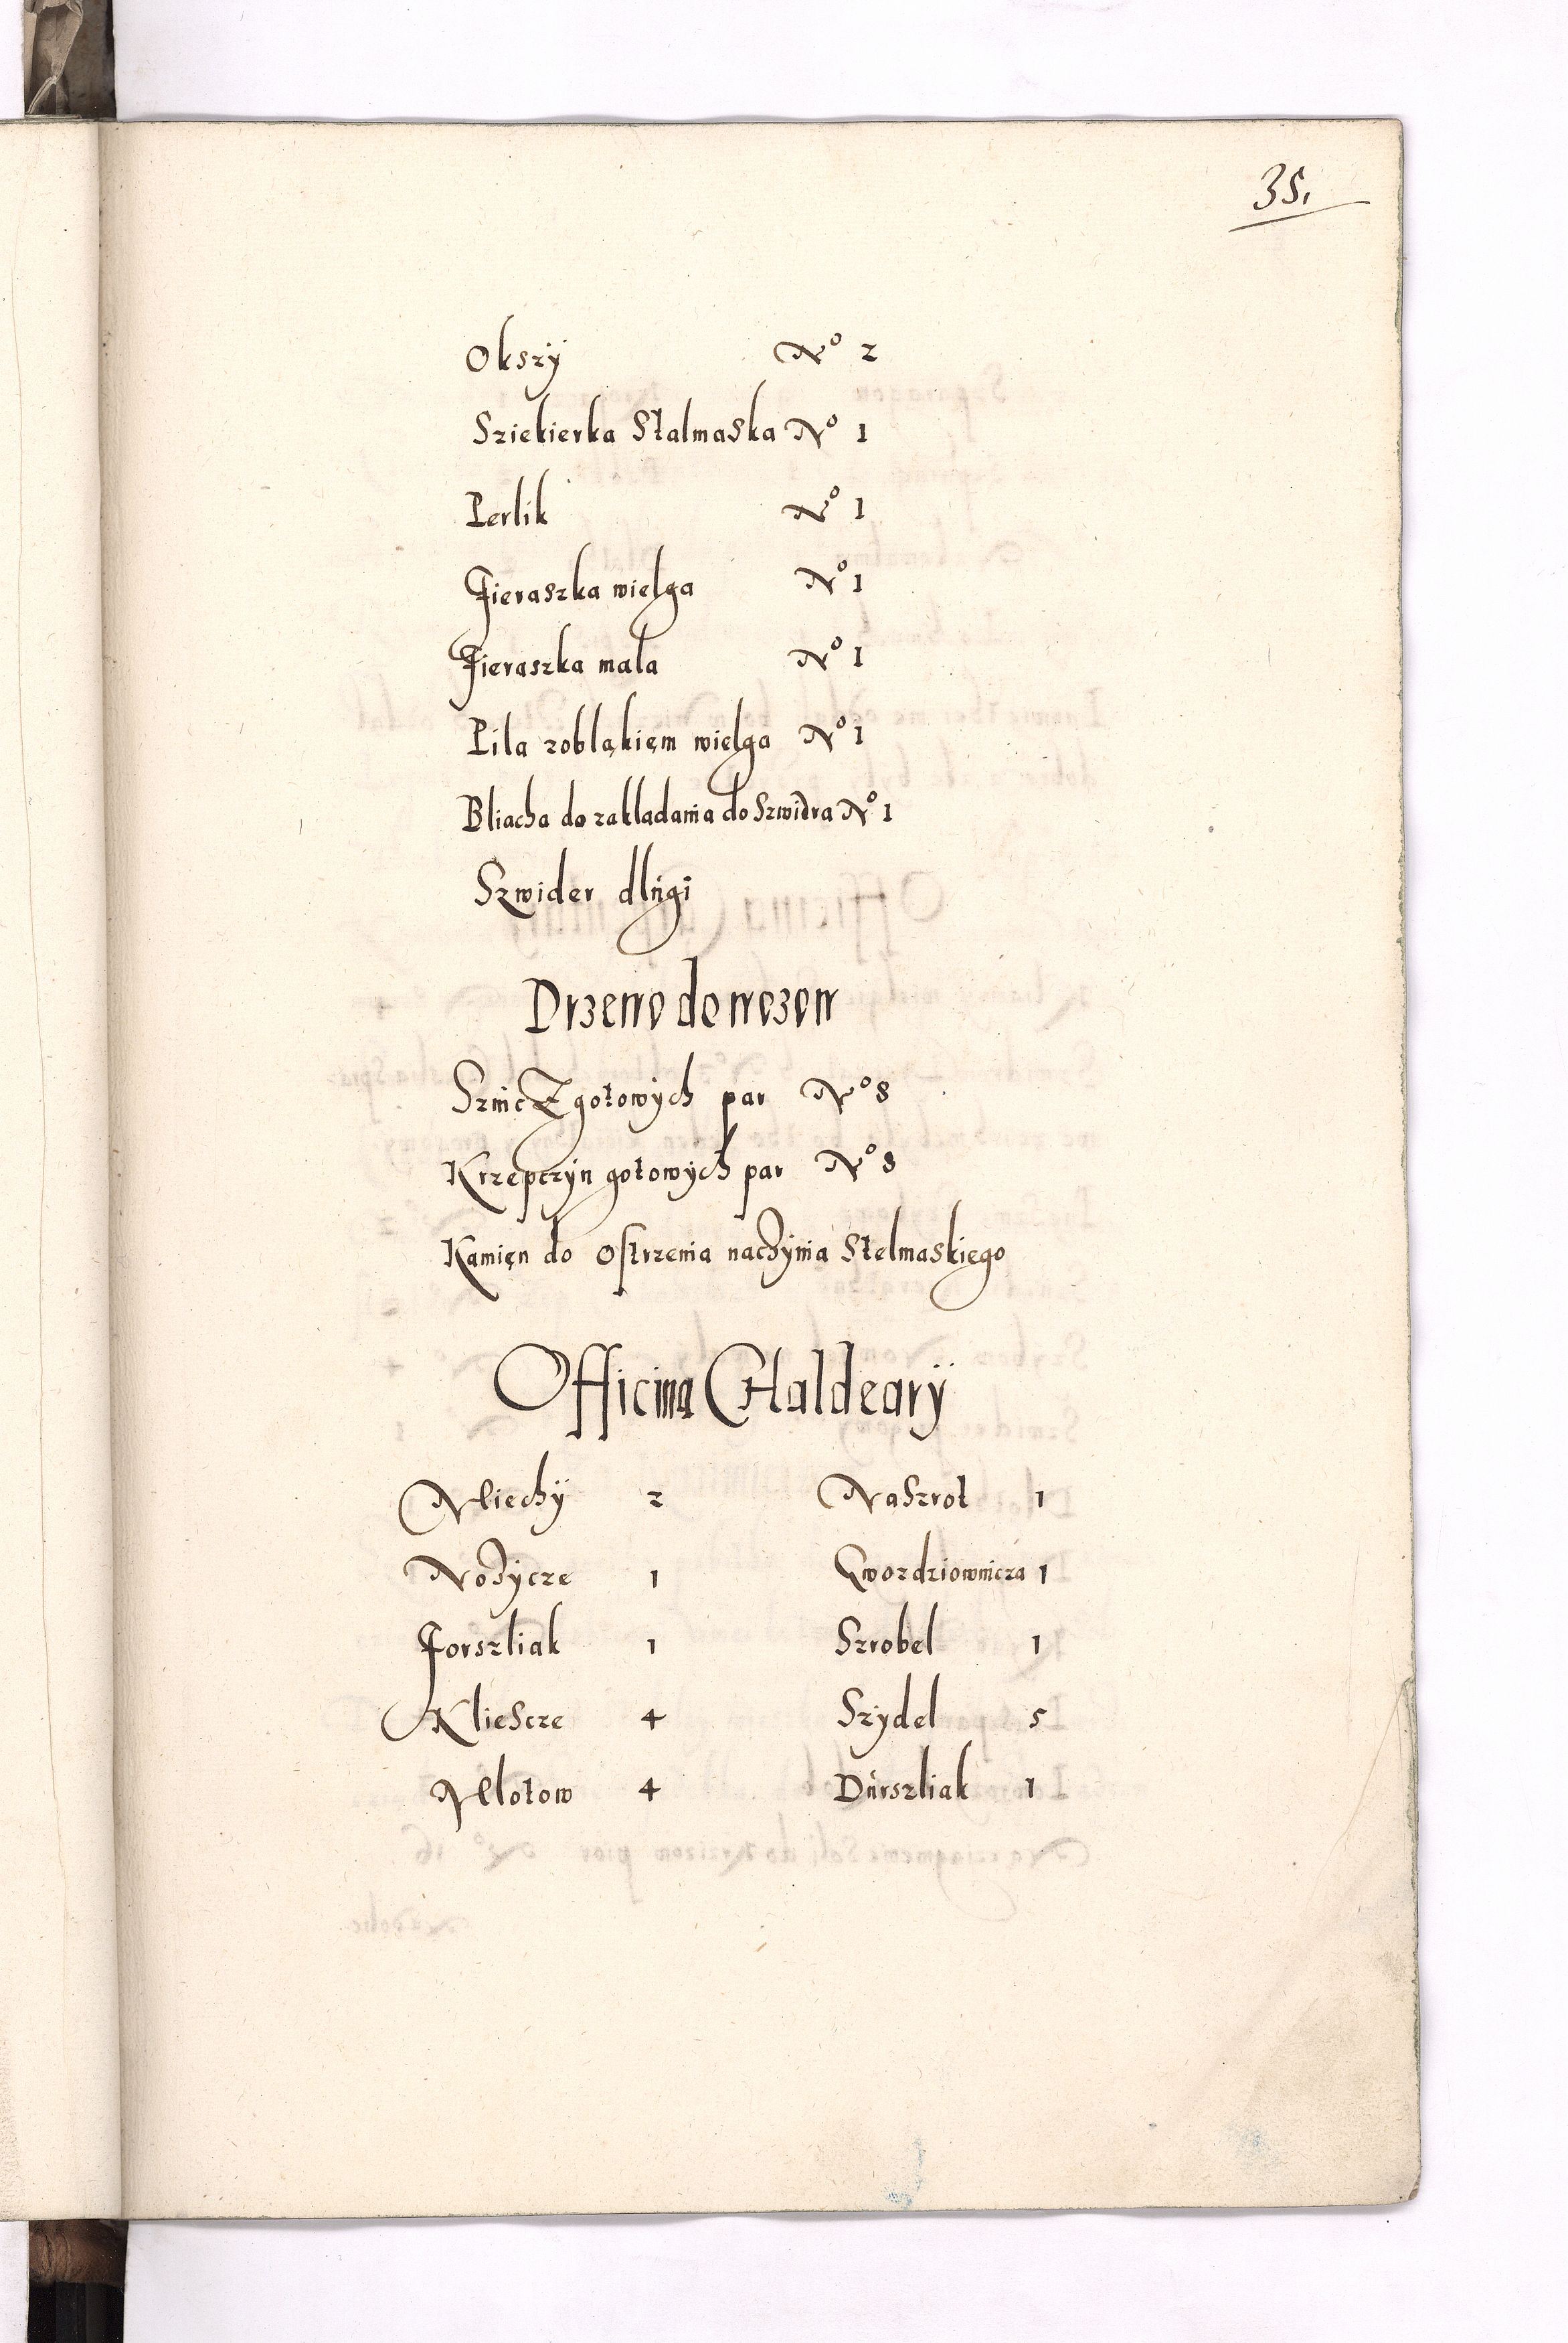 35.
Okszÿ N° 2
Sziekierka Stalmaska N° 1
Perlik N° 1
Fieraszka wielga N° 1
Fieraszka mala N° 1
Pila zobląkięm wielga N° 1
Bliacha do zakladania do Szwidra N° 1
Szwider dlugi
Drzewo do wozow
gotowych par N° 8
Krzepczyn gotowych par N° 8
Kamięn do ostrzenia naczynia Stelmaskiego
Officina Chaldearÿ
Miechÿ 2 Naszrot 1
Nożycze 1 Gwozdziownicza 1
Forszliak 1 Szrobel 1
Kliescze 4 Szydel 5
Mlotow 4 Durszliak 1